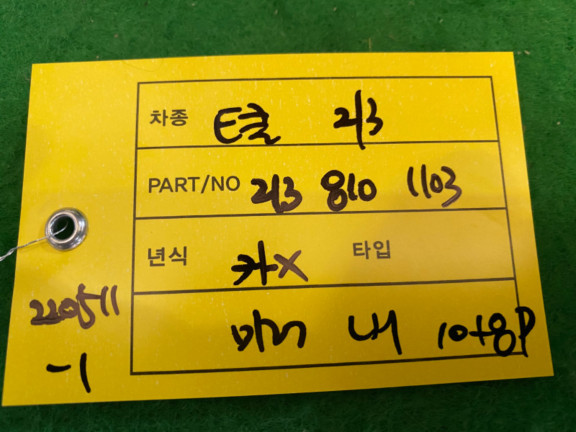 차종 E클 213
PART/NO 213 810 1103
년식 카X 타입
미러 내 10+8P
220511
-1